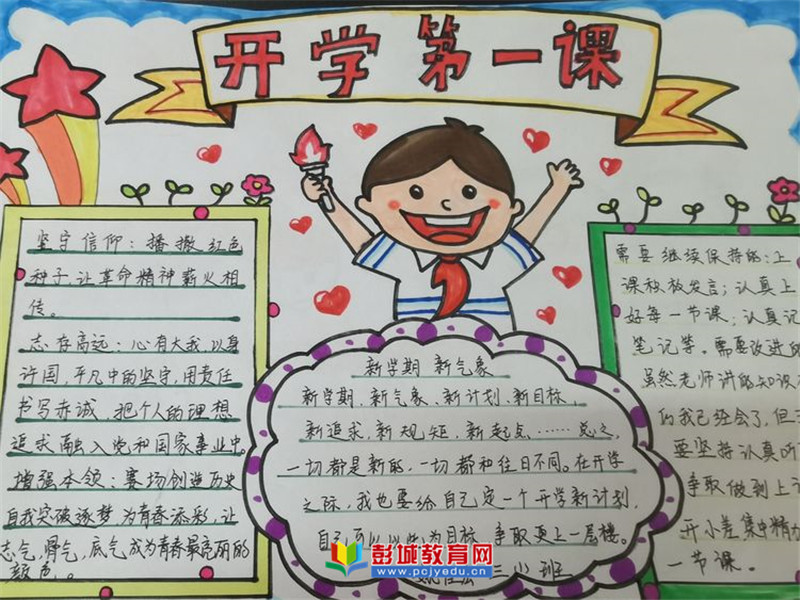 开学第一课
坚守信仰：播撒红色
种子，让革命精神薪火相
传。
志存高远：心有大我，以身
许国，平凡中的坚守，用责任
书写赤诚，把个人的理想
追求融入党和国家事业中。
增强本领：赛场创造历史
自我突破逐梦为青春添彩，让
志气，骨气，底气成为青春最亮丽的
颜色。
新学期 新气象
新学期、新气象、新计划、新目标，
新追求，新规矩，新起点……总之，
一切都是新的，一切都和往日不同。在开学
之际，我也要给自己定一个开学新计划，
自己可以以此为目标，争取更上一层楼。
二小 班
需要继续保持的：上
课积极发言；认真上
好每一节课；认真记
笔记等。需要改进的
虽然老师讲的知识
的我已经会了，但
要坚持认真听
争取做到上
开小差集中精力
一节课。
彭城教育网
www.pcjyedu.cn